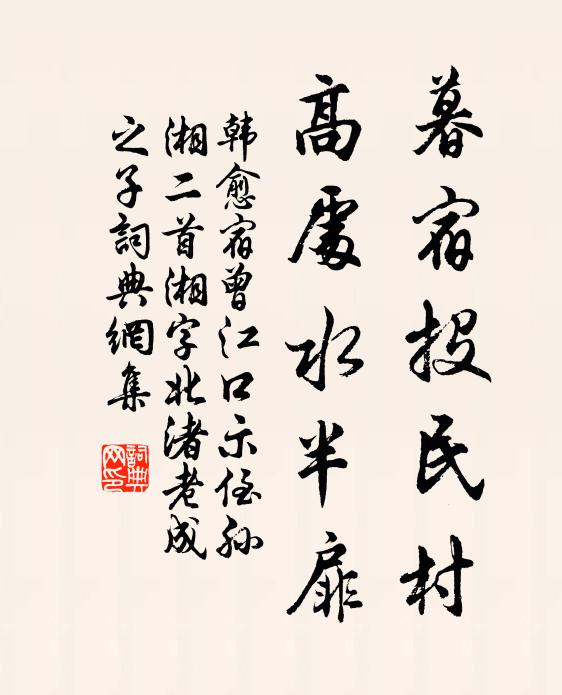 暮宿投民村
高處水半扉
韩愈宿曾江口示侄孙
湘二首湘字北渚老成
之子詞典網集
詞典网